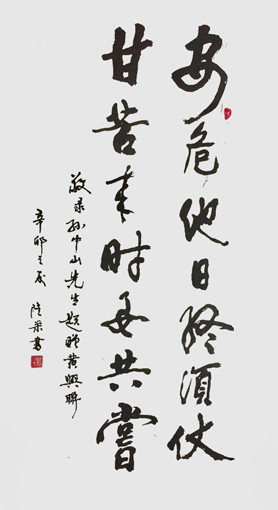 安危他日终须仗
甘苦来时要共尝
敬录孙中山先生题赠黄兴联
辛卯之夏 陆
书